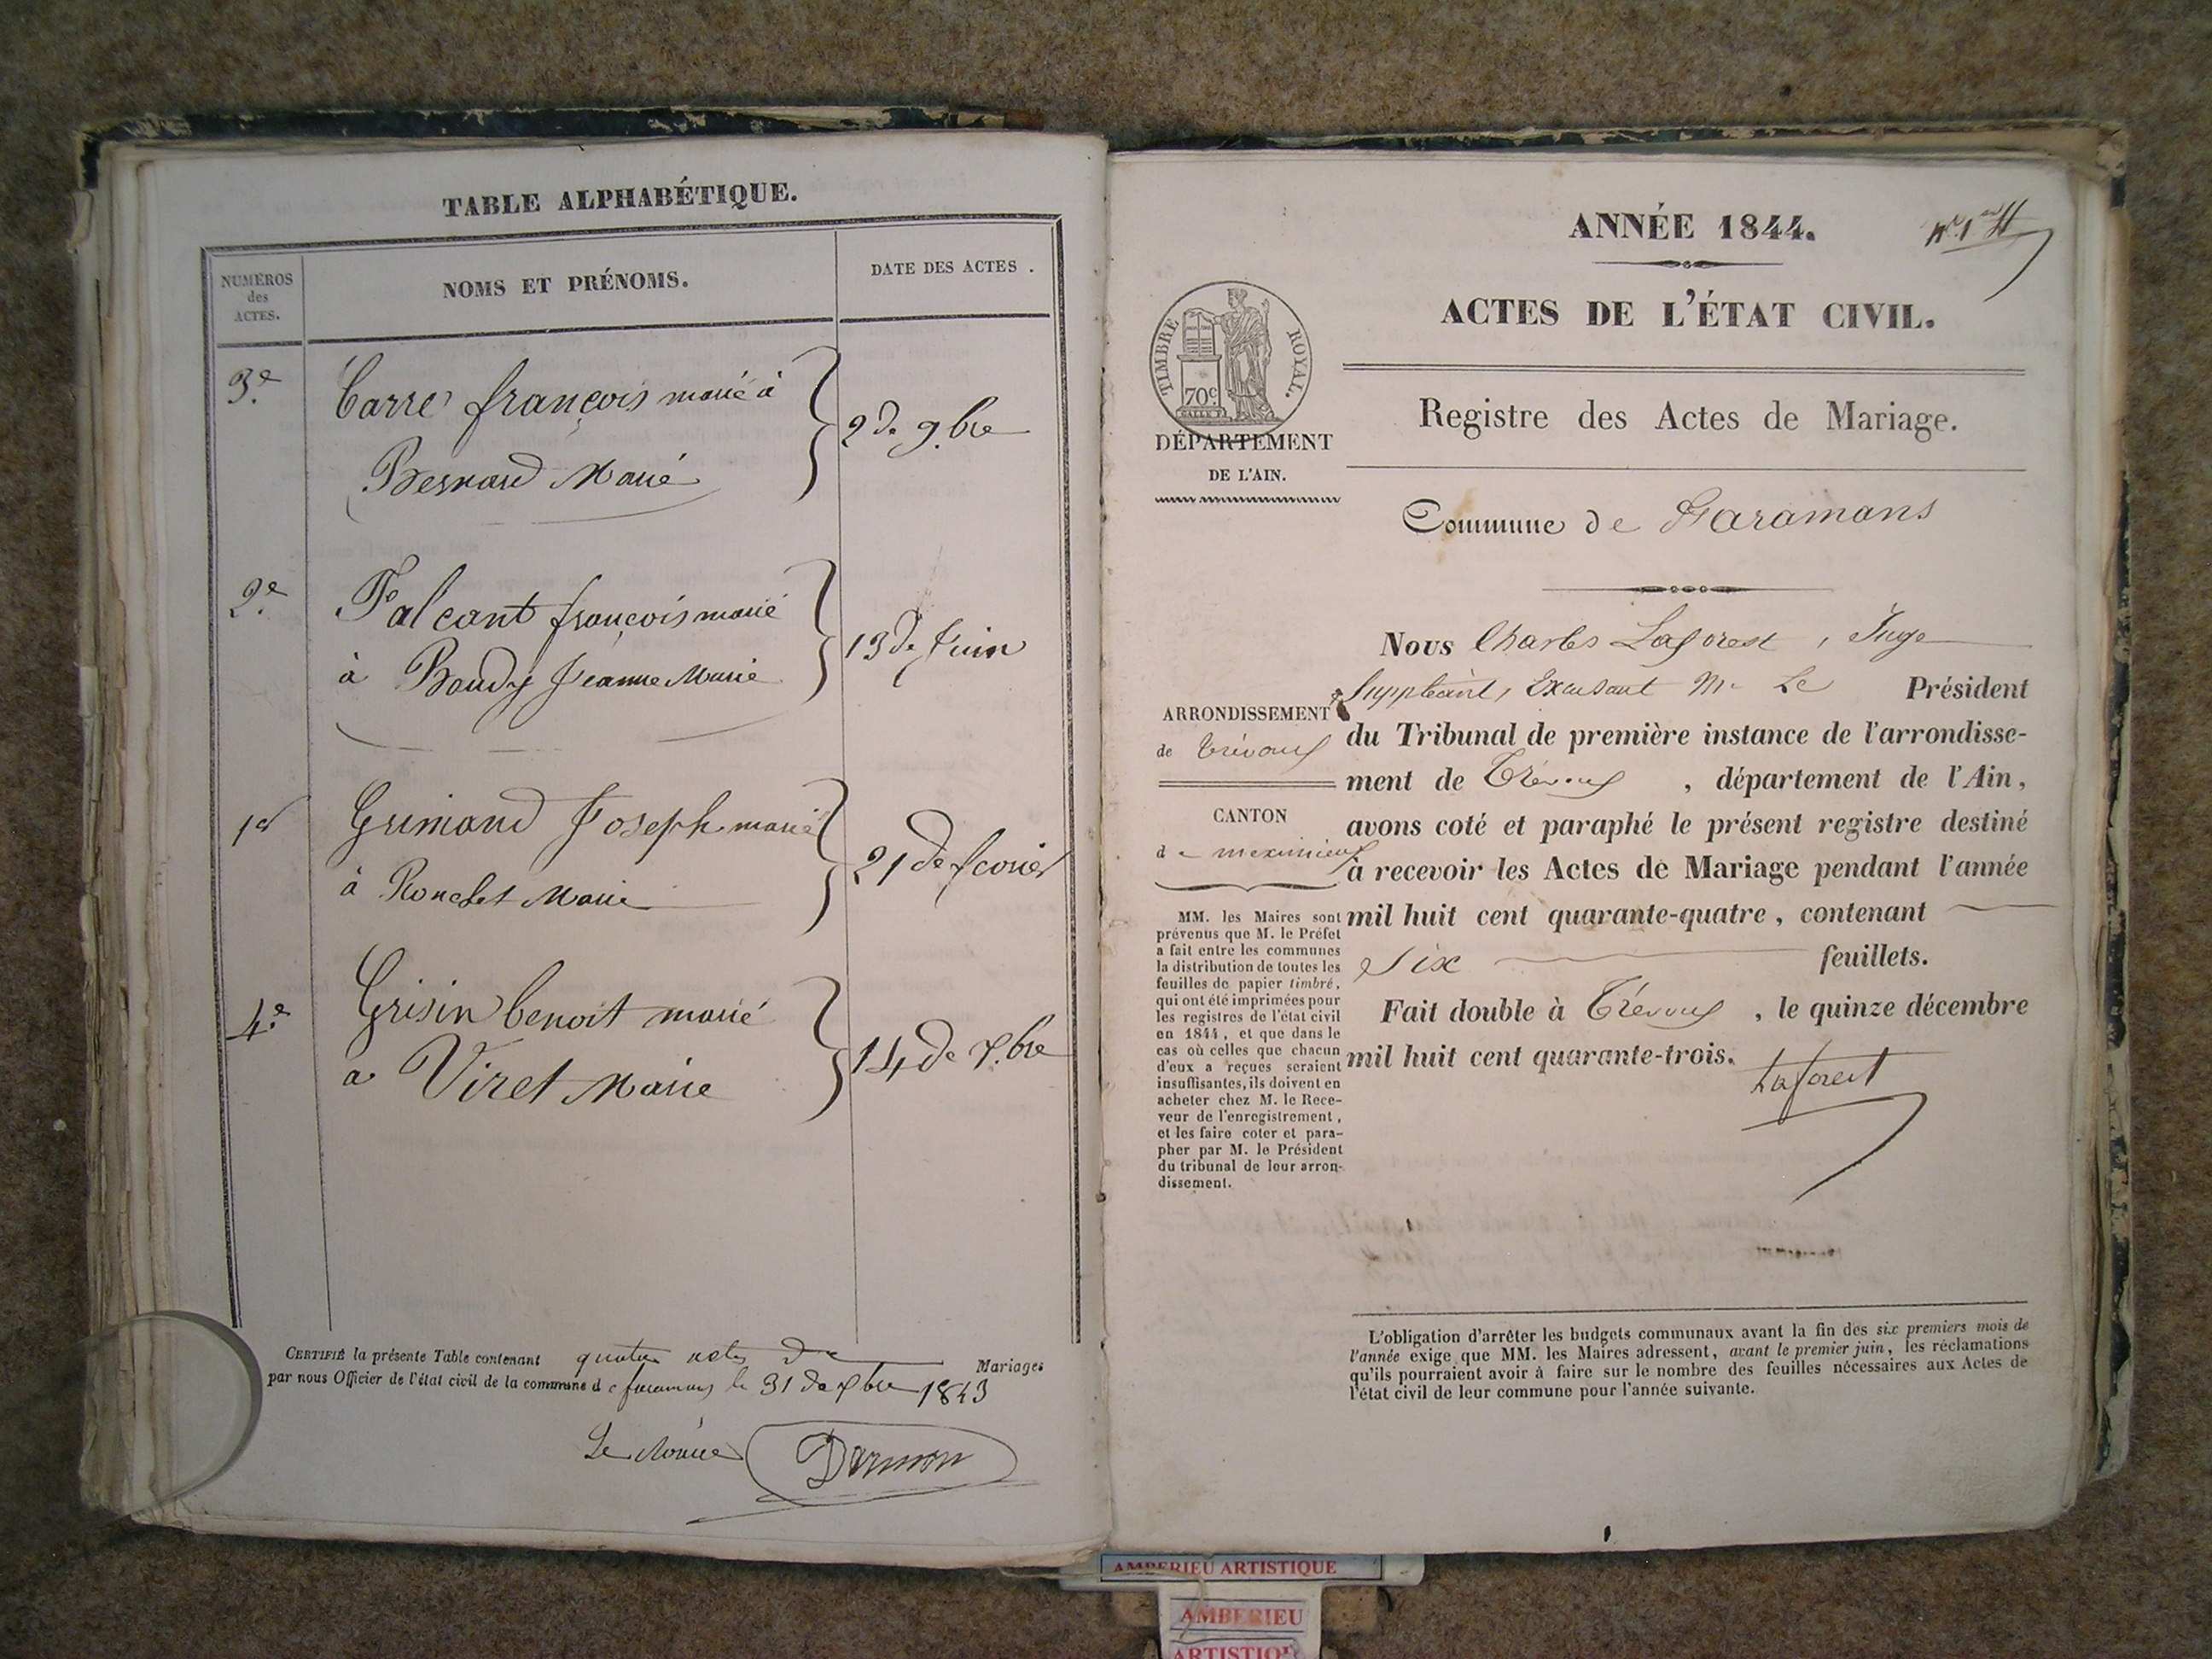 TABLE ALPHABÉTIQUE.
NUMÉROS
des
ACTES.
NOMS ET PRÉNOMS.
DATE DES ACTES .
3e
Carre françois marié à
Bernard Marie
2 de 9.bre
2e
Falcant françois marié
à Baudy Jeanne Marie
13 de Juin
1er
Grimand Joseph marié
à Ronchet Marie
21 de fevrier
4e
Grisin benoit marié
a Viret Marie
14 de x.bre
CERTIFIÉ la présente Table contenant quatre actes de Mariages
par nous Officier de l'état civil de la commune de faramans le 31 de xbre 1843
Le Maire
ANNÉE 1844.
ACTES DE L'ÉTAT CIVIL.
TIMBRE ROYAL.
70c
DÉPARTEMENT
DE L'AIN.
Registre des Actes de Mariage.
Commune de Faramans
ARRONDISSEMENT
de Trévoux
CANTON
de meximieux
MM. les Maires sont
prévenus que M. le Préfet
a fait entre les communes
la distribution de toutes les
feuilles de papier timbré,
qui ont été imprimées pour
les registres de l'état civil
en 1844, et que dans le
cas où celles que chacun
d'eux a reçues seraient
insuffisantes, ils doivent en
acheter chez M. le Rece-
veur de l'enregistrement,
et les faire coter et para-
pher par M. le Président
du tribunal de leur arron-
dissement.
Nous Charles Laforest, Juge
Suppléant, Excusant Mr Le Président
du Tribunal de première instance de l'arrondisse-
ment de Trévoux , département de l'Ain,
avons coté et paraphé le présent registre destiné
à recevoir les Actes de Mariage pendant l'année
mil huit cent quarante-quatre, contenant
Six feuillets.
Fait double à Trévoux , le quinze décembre
mil huit cent quarante-trois.
Laforest
L'obligation d'arrêter les budgets communaux avant la fin des six premiers mois de
l'année exige que MM. les Maires adressent, avant le premier juin, les réclamations
qu'ils pourraient avoir à faire sur le nombre des feuilles nécessaires aux Actes de
l'état civil de leur commune pour l'année suivante.
AMBERIEU ARTISTIQUE
AMBERIEU
ARTISTIQUE